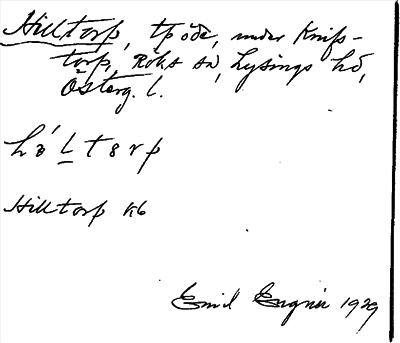 Hilltorp, tpöde, under Knifs-
torp, Röks sn, Lysings hd,
Österg. l.
Hilltorp kb
Emil Engnér 1929